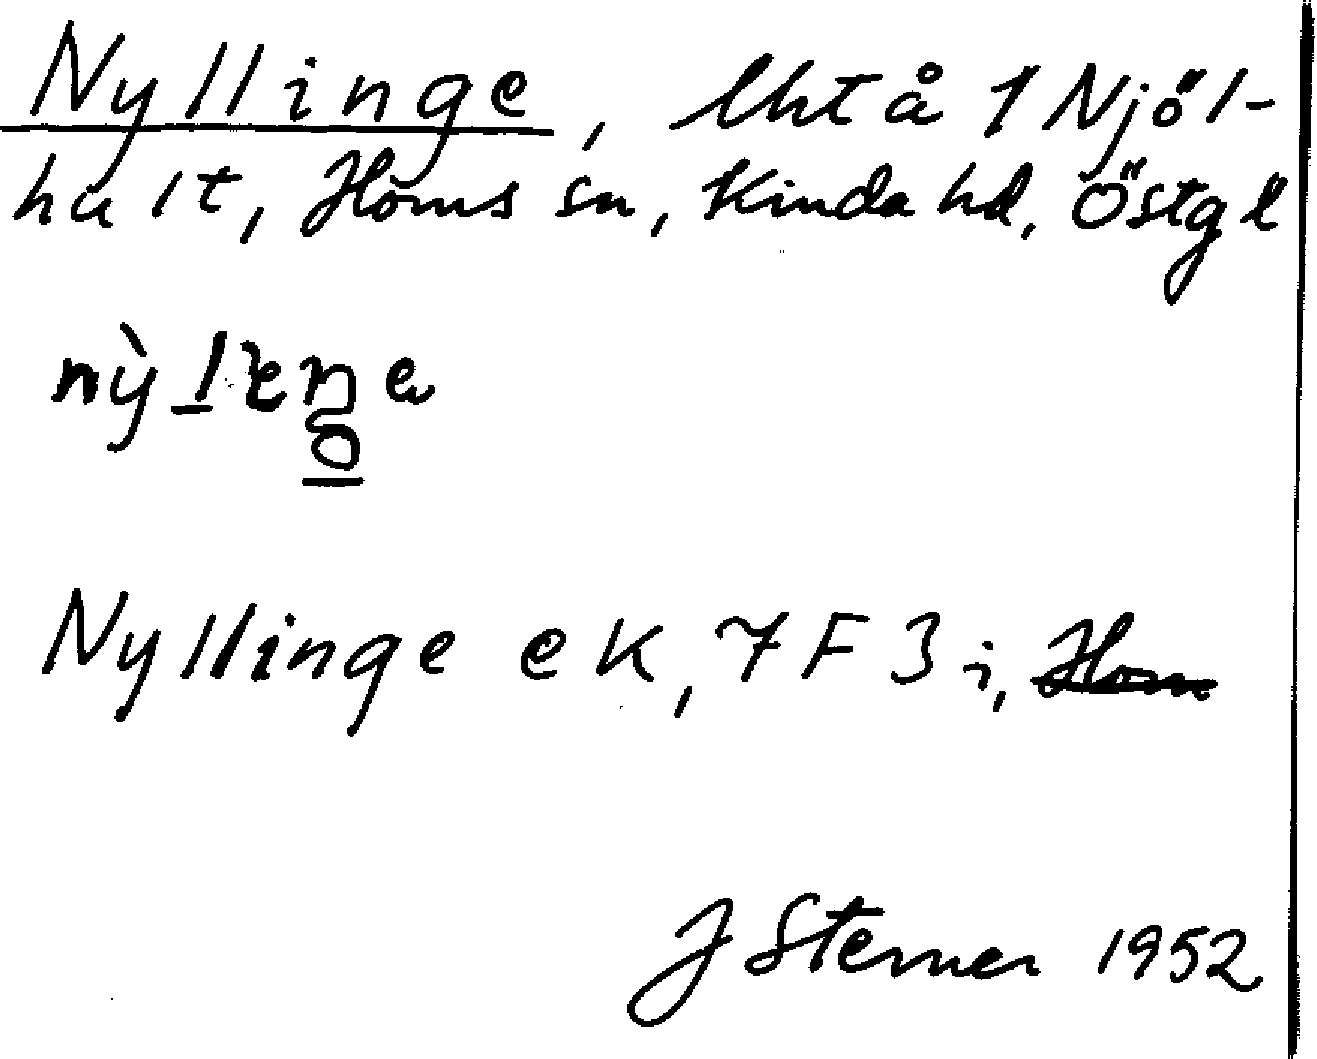 Nyllinge, lht å 1 Njöl-
hult, Horns sn, Kinda hd, Östgl
Nyllinge ek, 7F3i, Horn
J Sterner 1952